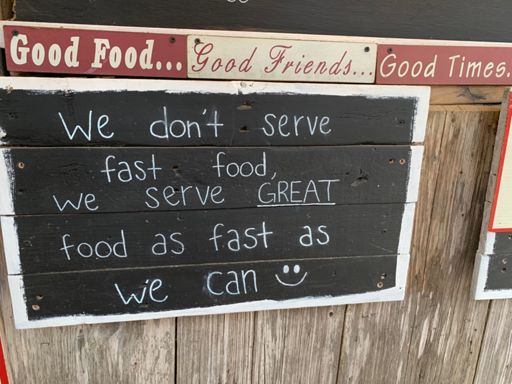 Good Food... Good Friends... Good Times.
We don't serve
fast food,
we serve GREAT
food as fast as
we can